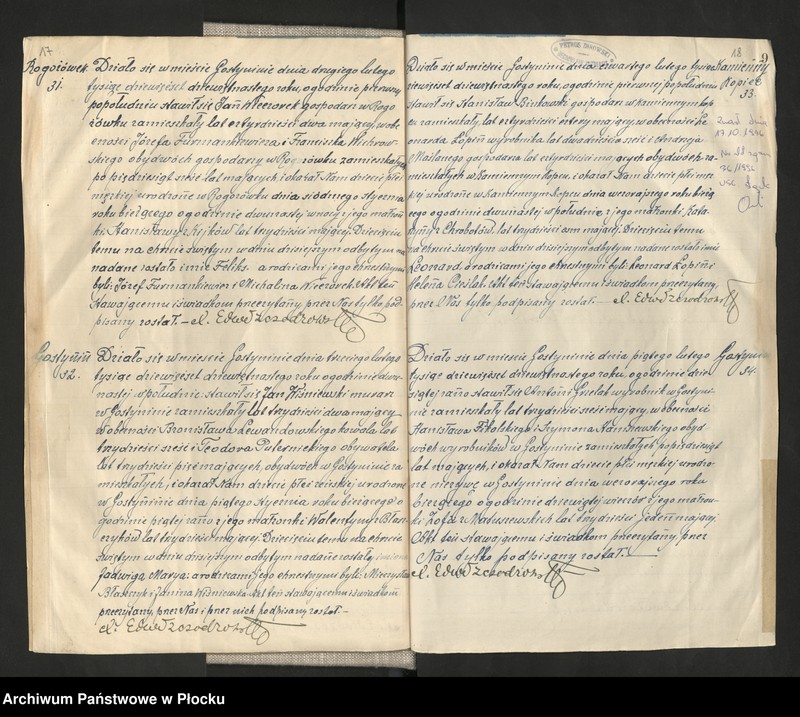 17
Rogożówek
31.
Działo się w mieście Gostyninie dnia drugiego lutego
tysiąc dziewięćset dziewiętnastego roku, o godzinie pierwszej
popołudniu stawił się Jan Wieczorek gospodarz w Rogo
żówku zamieszkały lat czterdzieści dwa mający, w obe
cności Józefa Furmankiewicza i Franciszka
skiego obydwóch gospodarzy w Rogożówku zamieszkałych
po pięćdziesiąt sześć lat mających i okazał Nam dziecię płci
męzkiej urodzone w Rogożówku dnia siódmego stycznia
roku bieżącego o godzinie dwunastej w nocy z jego małżon
ki Stanisławy z lat trzydzieści mającej. Dziecięciu
temu na chrzcie świętym w dniu dzisiejszym odbytym
nadane zostało imię Feliks. a rodzicami jego chrzestnymi
byli: Józef Furmankiewicz i Michalina Wieczorek. Akt ten
stawającemu i świadkom przeczytany, przez Nas tylko pod
pisany został. —
Gostynin
32.
Działo się w mieście Gostyninie dnia trzeciego lutego
tysiąc dziewięćset dziewiętnastego roku o godzinie dwu-
nastej w południe stawił się Jan Wiśniewski murarz
w Gostyninie zamieszkały lat trzydzieści dwa mający
w obecności Bronisława Lewandowskiego kowala lat
trzydzieści sześć i Teodora obywatela
lat trzydzieści pięć mających, obydwóch w Gostyninie za
mieszkałych, i okazał Nam dziecię płci żeńskiej urodzone
w Gostyninie dnia piątego stycznia roku bieżącego o
godzinie piątej rano z jego małżonki Walentyny z Błasz
czyków lat trzydzieści mającej. Dziecięciu temu na chrzcie
świętym w dniu dzisiejszym odbytym nadane zostały imiona
Jadwiga Marya: a rodzicami jego chrzestnymi byli: Mieczysław
Błaszczyk i Janina Wiśniewska. Akt ten stawającemu i świadkom
przeczytany, przez Nas i przez nich podpisany został. —
18
9
Kamienny
Kopiec
33.
Działo się w mieście Gostyninie dnia czwartego lutego tysiąc
dziewięćset dziewiętnastego roku, o godzinie pierwszej popołudniu
stawił się Stanisław Bińkowski gospodarz w Kamiennym Kop
cu zamieszkały, lat czterdzieści cztery mający w obecności Le
onarda Łopin wyrobnika lat dwadzieścia sześć i Andrzeja
gospodarza lat czterdzieści mających obydwóch za
mieszkałych w Kamiennym Kopcu, i okazał Nam dziecię płci mę
zkiej urodzone w Kamiennym Kopcu dnia wczorajszego roku bieżą
cego o godzinie dwunastej w południe z jego małżonki Kata
rzyny z Chrobotów, lat trzydzieści osm mającej. Dziecięciu temu
na chrzcie świętym w dniu dzisiejszym odbytym nadane zostało imię
Leonard, a rodzicami jego chrzestnymi byli: Leonard Łopin i
Helena Akt ten stawającemu i świadkom przeczytany,
przez Nas tylko podpisany został. —
dnia
17.10.1996
76/1996
USC
Gostynin
34.
Działo się w mieście Gostyninie dnia piątego lutego
tysiąc dziewięćset dziewiętnastego roku, o godzinie dzie
siątej rano stawił się Antoni wyrobnik w Gostyni-
nie zamieszkały lat trzydzieści sześć mający, w obecności
Stanisława i Szymona Kamińskiego obyd
wóch wyrobników w Gostyninie zamieszkałych po pięćdziesiąt
lat mających, i okazał Nam dziecię płci męzkiej urodzo
ne nieżywe w Gostyninie dnia wczorajszego roku
bieżącego o godzinie dziewiątej wieczór z jego małżon-
ki Zofii z Matuszewskich lat trzydzieści jeden mającej.
Akt ten stawającemu i świadkom przeczytany przez
Nas tylko podpisany został. —
Archiwum Państwowe w Płocku